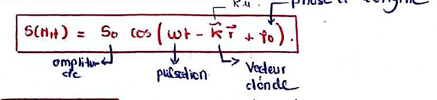 k.u
phase à l'origine
S(M,t) = S₀ cos(ωt - k⃗ r⃗ + φ₀).
amplitude
pulsation
Vecteur
d'onde